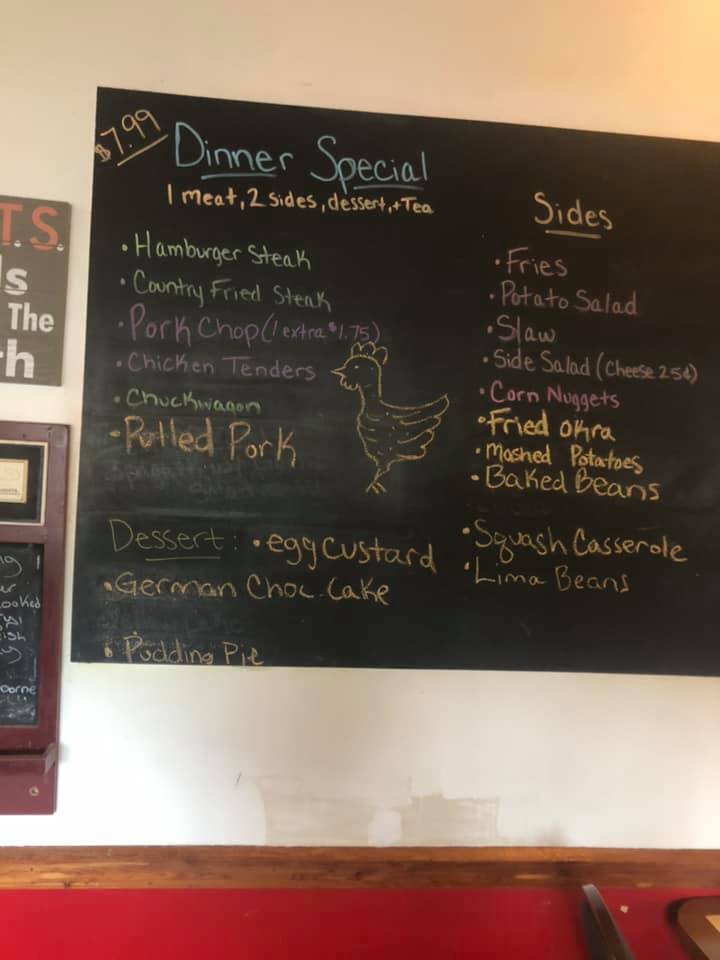 $7.99
Dinner Special
1 meat, 2 sides, dessert, + Tea
• Hamburger Steak
• Country Fried Steak
• Pork Chop (1 extra $1.75)
• Chicken Tenders
• Chuckwagon
• Pulled Pork
Dessert: • egg custard
• German Choc. Cake
• Pudding Pie
Sides
• Fries
• Potato Salad
• Slaw
• Side Salad (Cheese 25¢)
• Corn Nuggets
• Fried Okra
• Mashed Potatoes
• Baked Beans
• Squash Casserole
• Lima Beans
T.S.
The